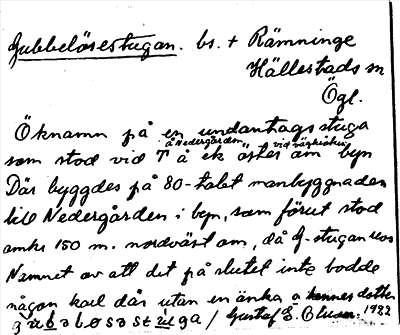 Gubbelösestugan. bs. + Rämninge
Hällestads sn
Ögl.
Öknamn på en undantagsstuga
å Nedergården vid vägkröken
som stod vid T å ek öster om byn
Där byggdes på 80-talet manbyggnaden
till Nedergården i byn, som förut stod
omkr 150 m. nordväst om, då G-stugan revs
Namnet av att det på slutet inte bodde
någon karl där utan en änka o hennes dotter
Gustaf E. Clusen. 1932